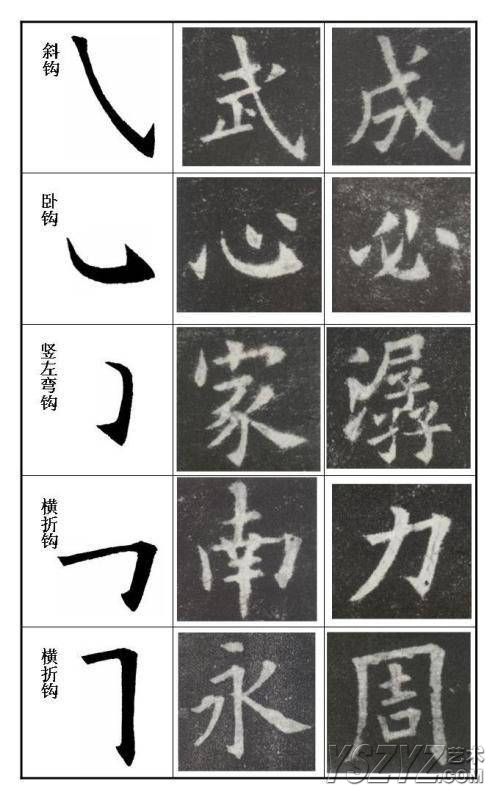 斜钩
武 成
卧钩
心 必
竖左弯钩
家 潺
横折钩
南 力
横折钩
永 周
YSZYZ艺术
.COM